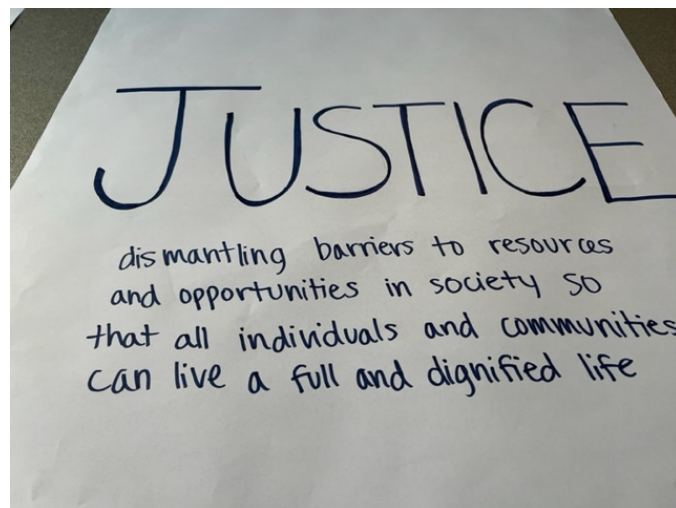 JUSTICE
dismantling barriers to resources
and opportunities in society so
that all individuals and communities
can live a full and dignified life